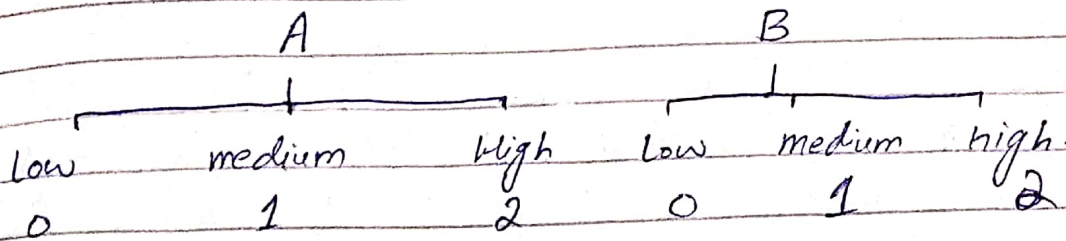 A B
Low medium High Low medium high
0 1 2 0 1 2